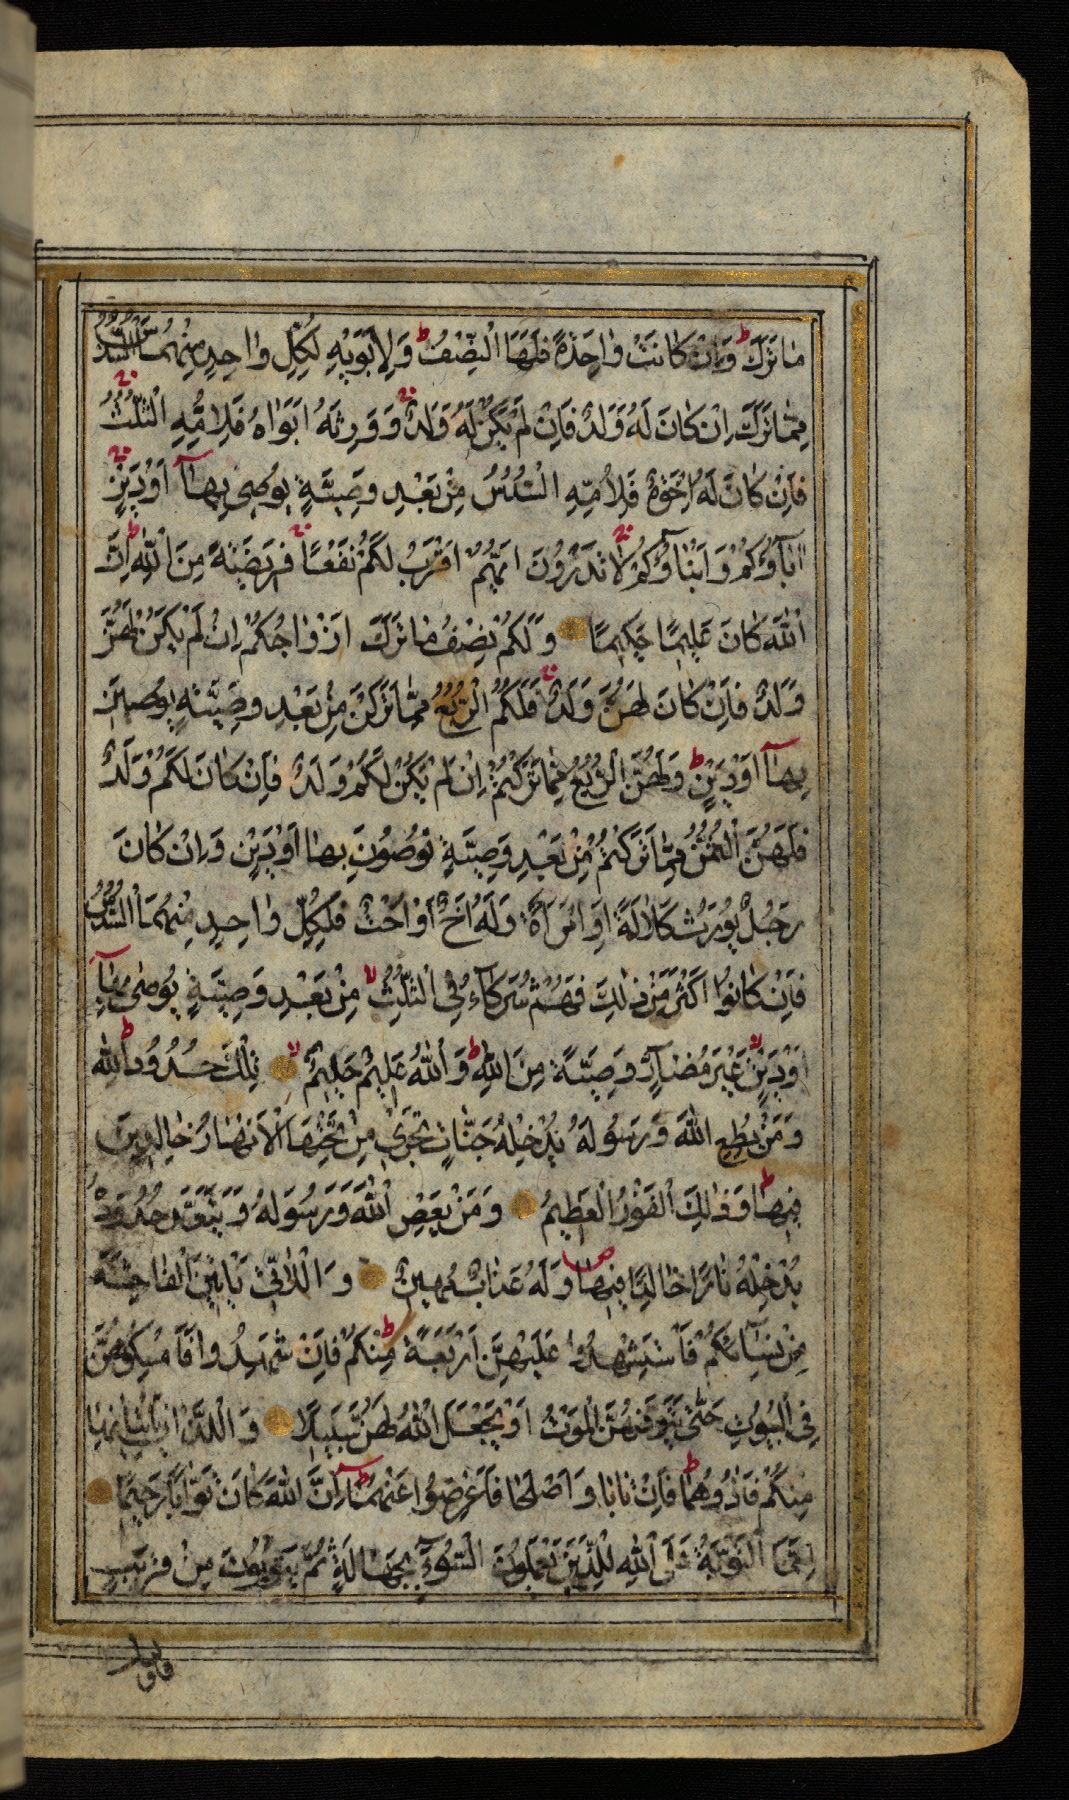 مَا تَرَكَ ط وَاِنْ كَانَتْ وَاحِدَةً فَلَهَا النِّصْفُ ط وَلِاَبَوَيْهِ لِكُلِّ وَاحِدٍ مِنْهُمَا السُّدُسُ
مِمَّا تَرَكَ اِنْ كَانَ لَهُ وَلَدٌ فَاِنْ لَمْ يَكُنْ لَهُ وَلَدٌ وَوَرِثَهُ اَبَوَاهُ فَلِاُمِّهِ الثُّلُثُ
فَاِنْ كَانَ لَهُ اِخْوَةٌ فَلِاُمِّهِ السُّدُسُ مِنْ بَعْدِ وَصِيَّةٍ يُوصِي بِهَآ اَوْ دَيْنٍ
اٰبَآؤُكُمْ وَاَبْنَآؤُكُمْ لَا تَدْرُونَ اَيُّهُمْ اَقْرَبُ لَكُمْ نَفْعًا فَرِيضَةً مِنَ اللّٰهِ ط اِنَّ
اللّٰهَ كَانَ عَلِيمًا حَكِيمًا وَلَكُمْ نِصْفُ مَا تَرَكَ اَزْوَاجُكُمْ اِنْ لَمْ يَكُنْ لَهُنَّ
وَلَدٌ فَاِنْ كَانَ لَهُنَّ وَلَدٌ فَلَكُمُ الرُّبُعُ مِمَّا تَرَكْنَ مِنْ بَعْدِ وَصِيَّةٍ يُوصِينَ
بِهَآ اَوْ دَيْنٍ ط وَلَهُنَّ الرُّبُعُ مِمَّا تَرَكْتُمْ اِنْ لَمْ يَكُنْ لَكُمْ وَلَدٌ فَاِنْ كَانَ لَكُمْ وَلَدٌ
فَلَهُنَّ الثُّمُنُ مِمَّا تَرَكْتُمْ مِنْ بَعْدِ وَصِيَّةٍ تُوصُونَ بِهَا اَوْ دَيْنٍ وَاِنْ كَانَ
رَجُلٌ يُورَثُ كَلَالَةً اَوِ امْرَاَةٌ وَلَهُ اَخٌ اَوْ اُخْتٌ فَلِكُلِّ وَاحِدٍ مِنْهُمَا السُّدُسُ
فَاِنْ كَانُوا اَكْثَرَ مِنْ ذٰلِكَ فَهُمْ شُرَكَآءُ فِي الثُّلُثِ لا مِنْ بَعْدِ وَصِيَّةٍ يُوصٰى بِهَآ
اَوْ دَيْنٍ لا غَيْرَ مُضَارٍّ وَصِيَّةً مِنَ اللّٰهِ ط وَاللّٰهُ عَلِيمٌ حَلِيمٌ لا تِلْكَ حُدُودُ اللّٰهِ ط
وَمَنْ يُطِعِ اللّٰهَ وَرَسُولَهُ يُدْخِلْهُ جَنَّاتٍ تَجْرِي مِنْ تَحْتِهَا الْاَنْهَارُ خَالِدِينَ
فِيهَا ط وَذٰلِكَ الْفَوْزُ الْعَظِيمُ وَمَنْ يَعْصِ اللّٰهَ وَرَسُولَهُ وَيَتَعَدَّ حُدُودَهُ
يُدْخِلْهُ نَارًا خَالِدًا فِيهَا ص وَلَهُ عَذَابٌ مُهِينٌ وَالّٰتِي يَاْتِينَ الْفَاحِشَةَ
مِنْ نِسَآئِكُمْ فَاسْتَشْهِدُوا عَلَيْهِنَّ اَرْبَعَةً مِنْكُمْ ط فَاِنْ شَهِدُوا فَاَمْسِكُوهُنَّ
فِي الْبُيُوتِ حَتّٰى يَتَوَفّٰهُنَّ الْمَوْتُ اَوْ يَجْعَلَ اللّٰهُ لَهُنَّ سَبِيلًا وَالَّذَانِ يَاْتِيَانِهَا
مِنْكُمْ فَاٰذُوهُمَا ط فَاِنْ تَابَا وَاَصْلَحَا فَاَعْرِضُوا عَنْهُمَآ ط اِنَّ اللّٰهَ كَانَ تَوَّابًا رَحِيمًا
اِنَّمَا التَّوْبَةُ عَلَى اللّٰهِ لِلَّذِينَ يَعْمَلُونَ السُّوٓءَ بِجَهَالَةٍ ثُمَّ يَتُوبُونَ مِنْ قَرِيبٍ
فاولئك